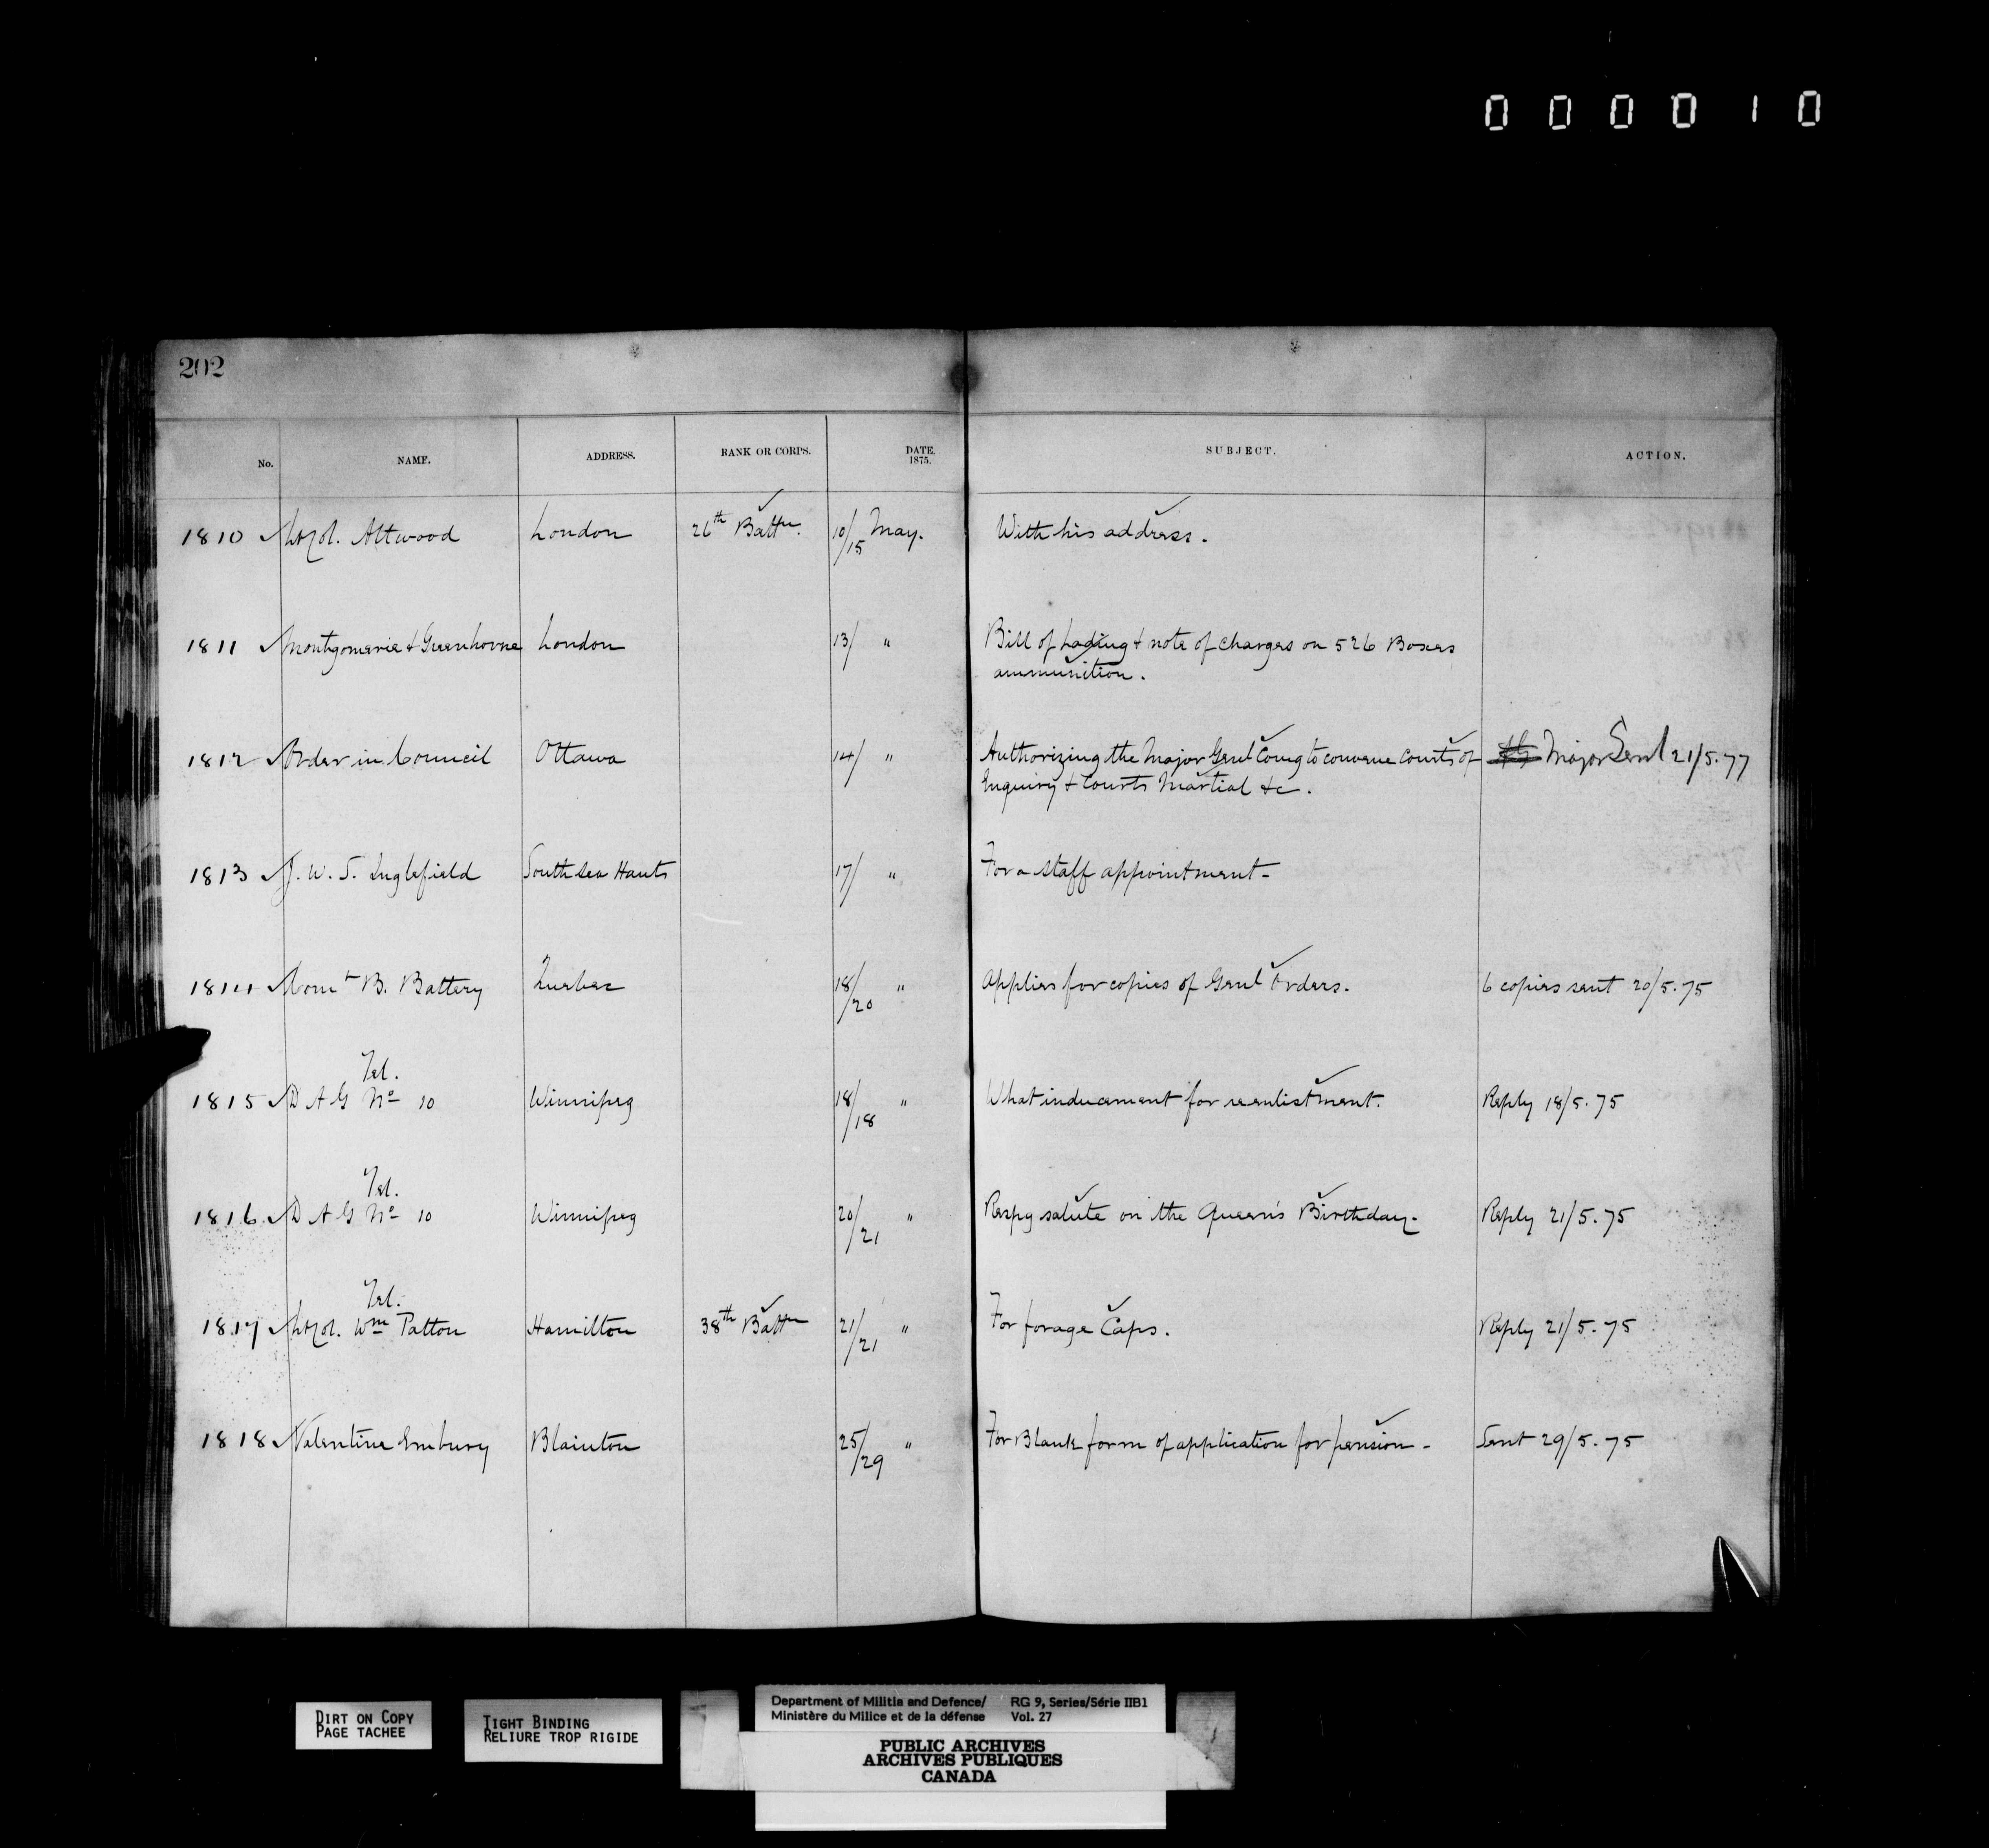 000010
202
No. NAME. ADDRESS. RANK OR CORPS. DATE. 1875. SUBJECT. ACTION.
1810 Lt Col. Attwood London 26th Battn. 10/15 May. With his address.
1811 Montgomerie & Greenhorne London 13/ " Bill of Lading & note of charges on 526 Boxes
ammunition.
1812 Order in Council Ottawa 14/ " Authorizing the Major Genl Comg to convene Courts of Major Genl 21/5.77
Enquiry & Courts Martial &c.
1813 J. W. S. Inglefield Southsea Hants 17/ " For a staff appointment-
1814 Comt B. Battery Quebec 18/20 " Applies for copies of Genl Orders. 6 copies sent 20/5.75
Tel.
1815 D A G No 10 Winnipeg 18/18 " What inducement for reenlistment. Reply 18/5.75
Tel.
1816 D A G No 10 Winnipeg 20/21 " Respg salute on the Queen's Birthday- Reply 21/5.75
Tel.
1817 Lt Col. Wm Patton Hamilton 38th Battn 21/21 " For forage Caps. Reply 21/5.75
1818 Valentine Embury Blainton 25/29 " For Blank form of application for pension- Sent 29/5.75
DIRT ON COPY
PAGE TACHEE
TIGHT BINDING
RELIURE TROP RIGIDE
Department of Militia and Defence/ RG 9, Series/Série IIB1
Ministère du Milice et de la défense Vol. 27
PUBLIC ARCHIVES
ARCHIVES PUBLIQUES
CANADA